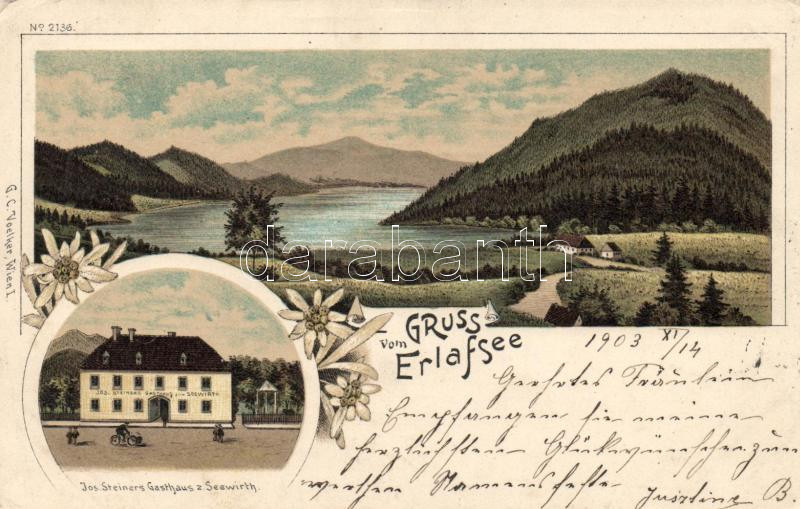 No 2136.
G. C. Voelker, Wien I.
darabanth
Gruss
vom
Erlafsee
JOS. STEINERS GASTHAUS zum SEEWIRTH
Jos. Steiners Gasthaus z. Seewirth.
1903 XI/14
Geehrtes Fräulein
Empfangen sie meine
herzlichsten Glückwünsche zum
werthen Namensfeste
Justine B.